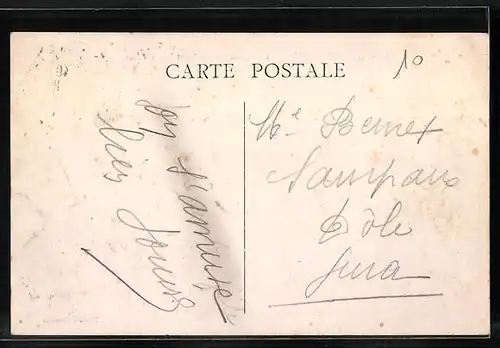 CARTE POSTALE
10
on s'amuse
bien
Mle Bernet
Sampans
Dôle
Jura